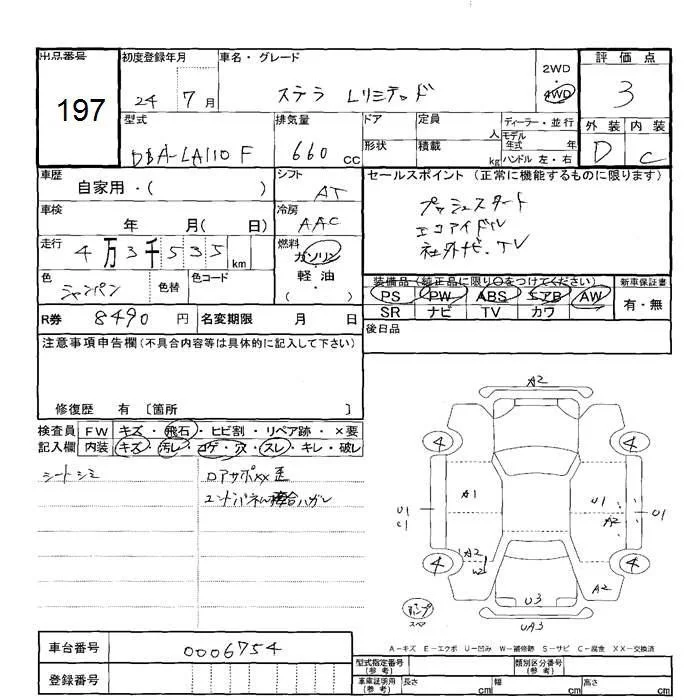 出品番号 初度登録年月 車名・グレード 評価点
197
24 7月 ステラ Lリミテッド 2WD・4WD 3
型式 排気量 ドア 定員 人 ディーラー・並行 外装 内装
DBA-LA110F 660cc 形状 積載 kg モデル年式 年 ハンドル 左・右 D C
車歴 自家用・( ) シフト AT
セールスポイント (正常に機能するものに限ります)
車検 年 月( 日) 冷房 AAC
プッシュスタート
エコアイドル
社外ナビ・TV
走行 4万3千535km 燃料 ガソリン・軽油・( )
色 シャンパン 色替 色コード
装備品(純正品に限り〇をつけてください) 新車保証書
PS PW ABS エアB AW 有・無
SR ナビ TV カワ
R券 8490円 名変期限 月 日
後日品
注意事項申告欄(不具合内容等は具体的に記入して下さい)
修復歴 有 〔箇所 〕
検査員記入欄 FW キズ・飛石・ヒビ割・リペア跡・×要
内装 キズ・汚レ・コゲ・穴・スレ・キレ・破レ
シートシミ
ロアサポXX歪
ハガレ
A2
4 4
A1 U1
U1 C1 A2 U1
A2 W2
4 4
A2
U3
UA3
スペア
A-キズ E-エクボ U-凹み W-補修跡 S-サビ C-腐食 XX-交換済
車台番号 0006754
登録番号
型式指定番号(参考) 類別区分番号(参考)
車庫証明用(参考) 長さ cm 幅 cm 高さ cm